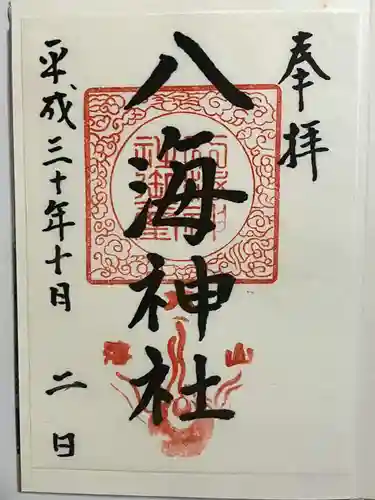 奉拝
八海神社
海山
平成三十年十月二日